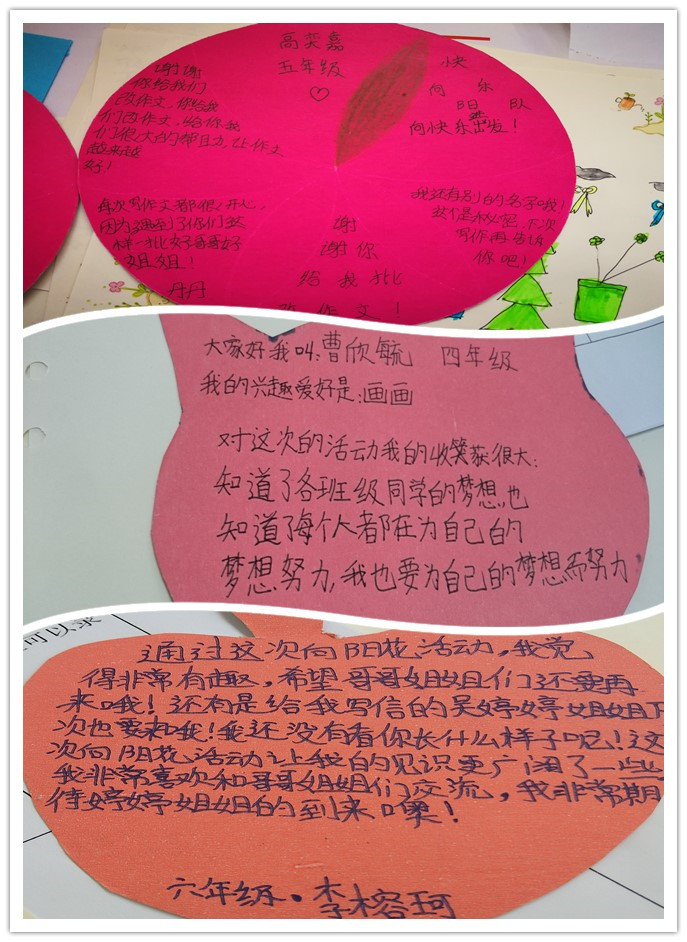 高奕嘉
五年级
谢谢
你给我们
改作文,你给我
们改作文,给你我
们很大的帮助力,让作文
越来越
好!
每次写作文都很开心,
因为遇到了你们这
样一批好哥哥好
姐姐!
丹丹
快
向 乐
阳 队
进
向快乐出发!
我还有别的名字哦!
这个是秘密,下次
写作再告诉
你吧!
谢
谢你
给我批
改作文!
大家好我叫:曹欣毓 四年级
我的兴趣爱好是:画画
对这次的活动我的收获很大:
知道了各班级同学的梦想,也
知道了每个人都在为自己的
梦想努力,我也要为自己的梦想而努力
可以录
通过这次向阳花活动,我觉
得非常有趣,希望哥哥姐姐们还要再
来哦!还有是给我写信的吴婷婷姐姐下
次也要来哦!我还没有看你长什么样子呢!这
次向阳花活动让我的见识更广阔了一些
我非常喜欢和哥哥姐姐们交流,我非常期
待婷婷姐姐的到来噢!
六年级·李榕珂